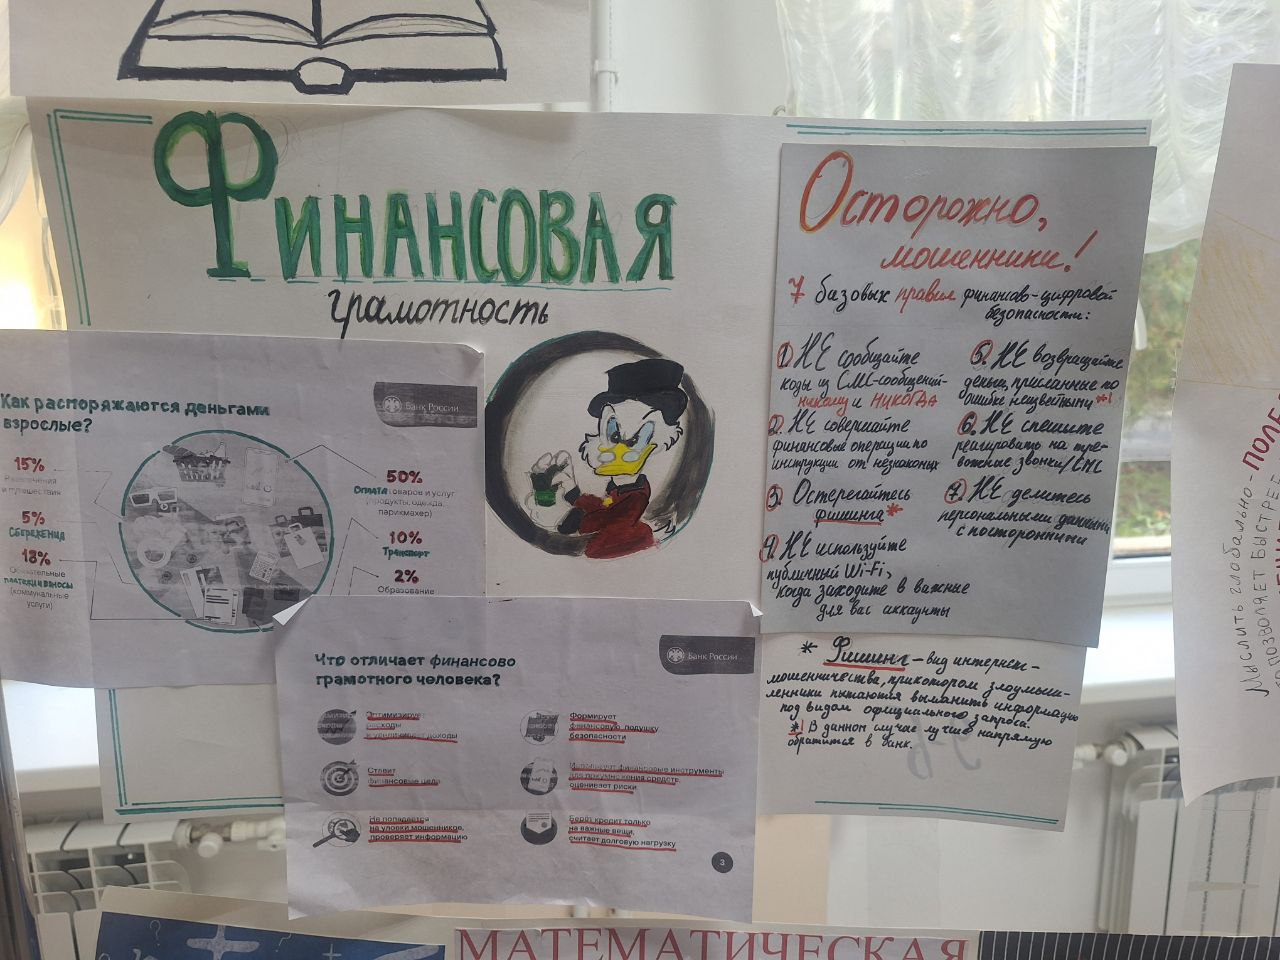 Финансовая
грамотность
Осторожно,
мошенники!
7 базовых правил финансово-цифровой
безопасности:
1. НЕ сообщайте
коды из СМС-сообщений-
никому и НИКОГДА
2. НЕ совершайте
финансовые операции по
инструкции от незнакомых
3. Остерегайтесь
фишинга*
4. НЕ используйте
публичный Wi-Fi,
когда заходите в важные
для вас аккаунты
5. НЕ возвращайте
деньги, присланные по
ошибке неизвестными *1
6. НЕ спешите
реагировать на тре-
вожные звонки/СМС
7. НЕ делитесь
персональными данными
с посторонними
* Фишинг - вид интернет-
мошенничества, при котором злоумыш-
ленники пытаются выманить информацию
под видом официального запроса.
*1 В данном случае лучше напрямую
обратится в банк.
Как распоряжаются деньгами
взрослые?
Банк России
15%
Развлечения
и путешествия
5%
Сбережения
18%
Обязательные
платежи и взносы
(коммунальные
услуги)
50%
Оплата товаров и услуг
(продукты, одежда,
парикмахер)
10%
Транспорт
2%
Образование
Что отличает финансово
грамотного человека?
Банк России
Оптимизирует
расходы
и увеличивает доходы
Ставит
финансовые цели
Не попадается
на уловки мошенников,
проверяет информацию
Формирует
финансовую подушку
безопасности
Использует финансовые инструменты
для приумножения средств,
оценивает риски
Берёт кредит только
на важные вещи,
считает долговую нагрузку
3
Мыслить глобально -
позволяет быстрее
МАТЕМАТИЧЕСКАЯ